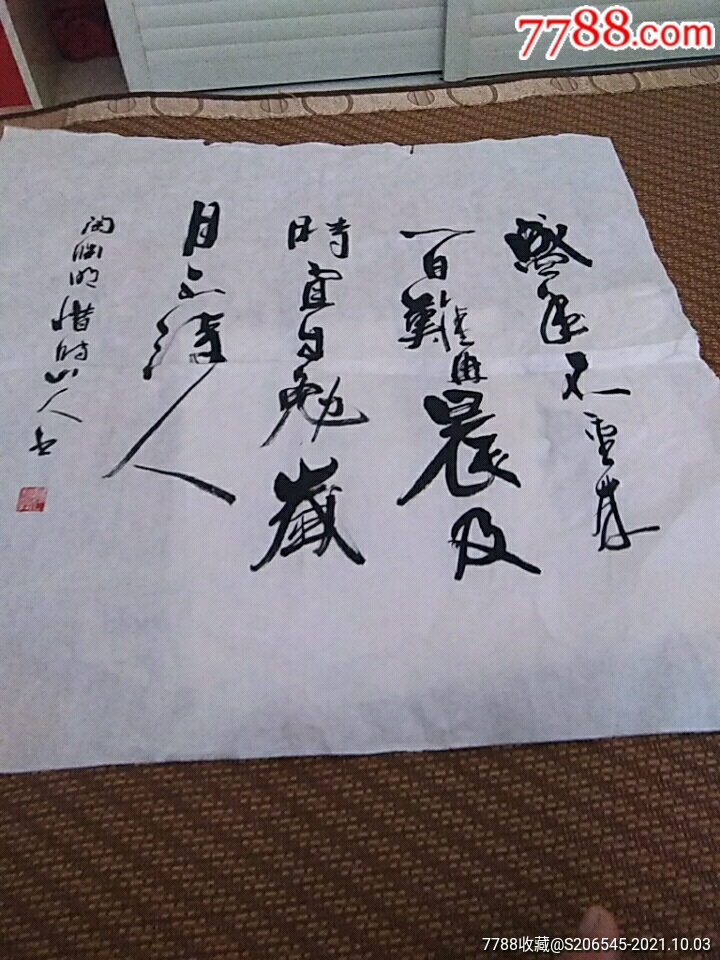 7788.com
盛年不重来
一日難再晨及
時宜自勉歲
月不待人
陶渊明惜时山人书
7788收藏@S206545-2021.10.03